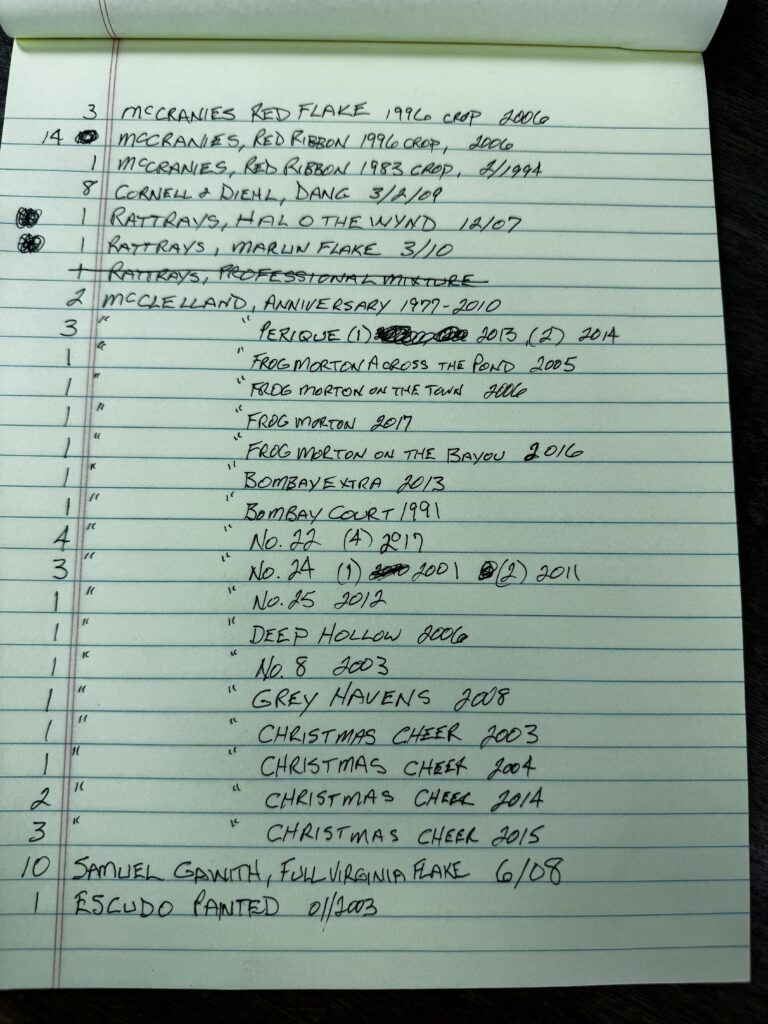 3 McCRANIES RED FLAKE 1996 CROP 2006
14 McCRANIES, RED RIBBON 1996 CROP, 2006
1 McCRANIES, RED RIBBON 1983 CROP, 2/1994
8 CORNELL & DIEHL, DANG 3/2/09
1 RATTRAYS, HAL O THE WYND 12/07
1 RATTRAYS, MARLIN FLAKE 3/10
1 RATTRAYS, PROFESSIONAL MIXTURE
2 McCLELLAND, ANNIVERSARY 1977-2010
3 " " PERIQUE (1) 2013, (2) 2014
1 " " FROG MORTON ACROSS THE POND 2005
1 " " FROG MORTON ON THE TOWN 2006
1 " " FROG MORTON 2017
1 " " FROG MORTON ON THE BAYOU 2016
1 " " BOMBAY EXTRA 2013
1 " " BOMBAY COURT 1991
4 " " No. 22 (4) 2017
3 " " No. 24 (1) 2001 (2) 2011
1 " " No. 25 2012
1 " " DEEP HOLLOW 2006
1 " " No. 8 2003
1 " " GREY HAVENS 2008
1 " " CHRISTMAS CHEER 2003
1 " " CHRISTMAS CHEER 2004
2 " " CHRISTMAS CHEER 2014
3 " " CHRISTMAS CHEER 2015
10 SAMUEL GAWITH, FULL VIRGINIA FLAKE 6/08
1 ESCUDO PAINTED 01/2003